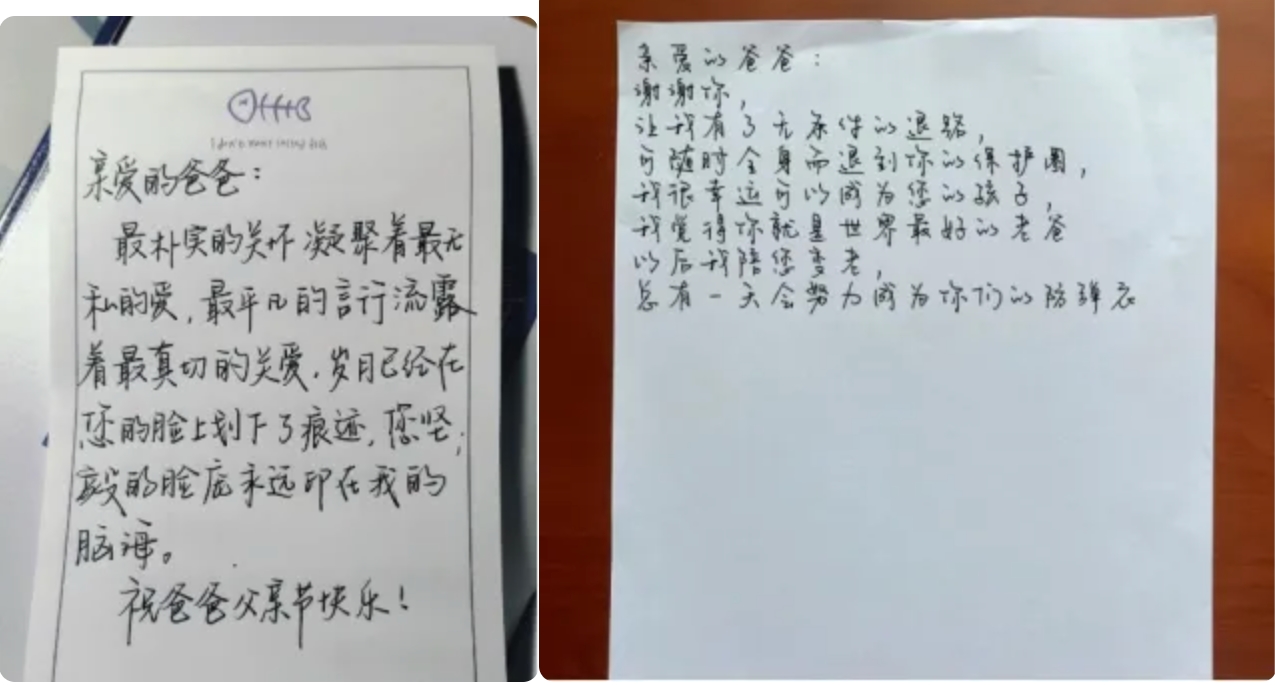 亲爱的爸爸：
最朴实的关怀凝聚着最无
私的爱，最平凡的言行流露
着最真切的关爱，岁月已经在
您的脸上划下了痕迹，您坚
毅的脸庞永远印在我的
脑海。
祝爸爸父亲节快乐！
亲爱的爸爸：
谢谢你，
让我有了无条件的退路，
可随时全身而退到你的保护圈，
我很幸运可以成为您的孩子，
我觉得你就是世界最好的老爸
以后我陪您变老，
总有一天会努力成为你们的防弹衣